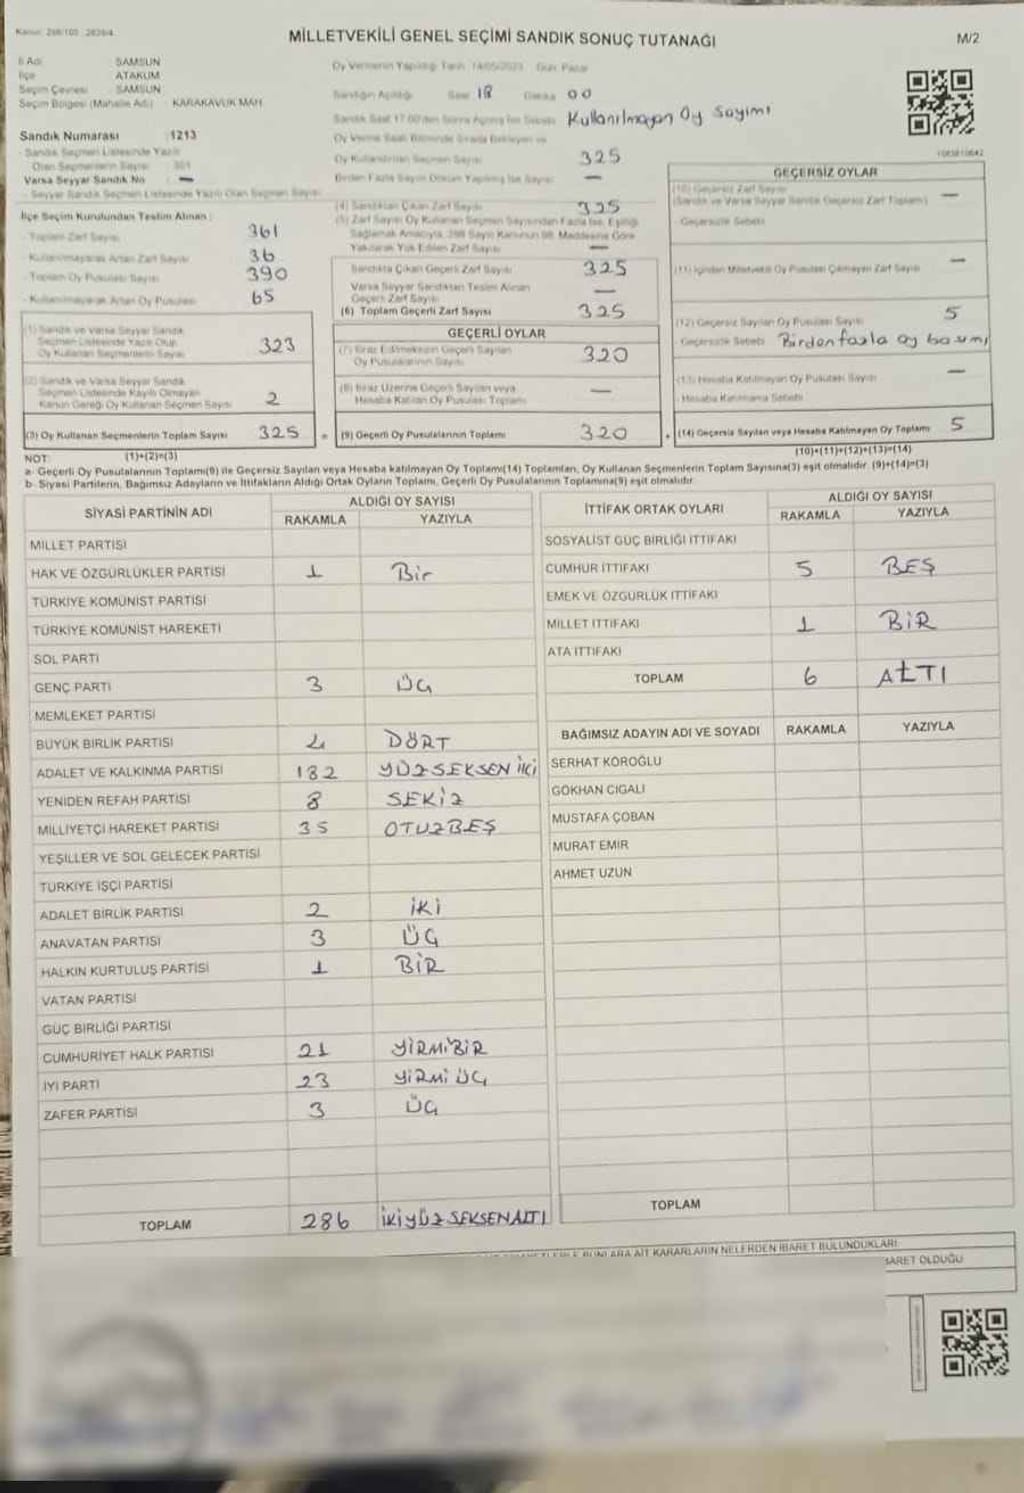 MİLLETVEKİLİ GENEL SEÇİMİ SANDIK SONUÇ TUTANAĞI
M/2
İl Adı SAMSUN
İlçe ATAKUM
Seçim Çevresi SAMSUN
Seçim Bölgesi (Mahalle Adı) KARAKAVUK MAH.
Sandık Numarası 1213
Sandık Seçmen Listesinde Yazılı
Olan Seçmenlerin Sayısı
Varsa Seyyar Sandık No —
Seyyar Sandık Seçmen Listesinde Yazılı Olan Seçmen Sayısı
İlçe Seçim Kurulundan Teslim Alınan :
Toplam Zarf Sayısı 361
Kullanılmayarak Artan Zarf Sayısı 36
Toplam Oy Pusulası Sayısı 390
Kullanılmayarak Artan Oy Pusulası 65
(1) Sandık ve Varsa Seyyar Sandık
Seçmen Listesinde Yazılı Olup
Oy Kullanan Seçmenlerin Sayısı 323
(2) Sandık ve Varsa Seyyar Sandık
Seçmen Listesinde Kayıtlı Olmayan
Kanun Gereği Oy Kullanan Seçmen Sayısı 2
(3) Oy Kullanan Seçmenlerin Toplam Sayısı 325
Oy Vermenin Yapıldığı Tarih 14/05/2023 Gün Pazar
Sandığın Açıldığı Saat 18 Dakika 00
Sandık Saat 17.00'den Sonra Açılmış İse Sebebi Kullanılmayan Oy Sayımı
Oy Kullandırılan Seçmen Sayısı 325
Birden Fazla Sayım Döküm Yapılmış İse Sayısı —
(4) Sandıktan Çıkan Zarf Sayısı 325
(5) Zarf Sayısı Oy Kullanan Seçmen Sayısından Fazla İse, Eşitliği
Sağlamak Amacıyla, 298 Sayılı Kanunun 98. Maddesine Göre
Yakılarak Yok Edilen Zarf Sayısı —
Sandıkta Çıkan Geçerli Zarf Sayısı 325
Varsa Seyyar Sandıktan Teslim Alınan
Geçerli Zarf Sayısı —
(6) Toplam Geçerli Zarf Sayısı 325
GEÇERLİ OYLAR
(7) İtiraz Edilmeksizin Geçerli Sayılan
Oy Pusulalarının Sayısı 320
(8) İtiraz Üzerine Geçerli Sayılan veya
Hesaba Katılan Oy Pusulası Toplamı —
(9) Geçerli Oy Pusulalarının Toplamı 320
GEÇERSİZ OYLAR
(10) Geçersiz Zarf Sayısı
(Sandık ve Varsa Seyyar Sandık Geçersiz Zarf Toplamı) —
Geçersizlik Sebebi
(11) İçinden Milletvekili Oy Pusulası Çıkmayan Zarf Sayısı —
(12) Geçersiz Sayılan Oy Pusulası Sayısı 5
Geçersizlik Sebebi Birden fazla oy basımı
(13) Hesaba Katılmayan Oy Pusulası Sayısı —
Hesaba Katılmama Sebebi
(14) Geçersiz Sayılan veya Hesaba Katılmayan Oy Toplamı 5
NOT: (1)+(2)=(3) (10)+(11)+(12)+(13)=(14)
a- Geçerli Oy Pusulalarının Toplamı(9) ile Geçersiz Sayılan veya Hesaba katılmayan Oy Toplamı(14) Toplamları, Oy Kullanan Seçmenlerin Toplam Sayısına(3) eşit olmalıdır. (9)+(14)=(3)
b- Siyasi Partilerin, Bağımsız Adayların ve İttifakların Aldığı Ortak Oyların Toplamı, Geçerli Oy Pusulalarının Toplamına(9) eşit olmalıdır.
SİYASİ PARTİNİN ADI ALDIĞI OY SAYISI
RAKAMLA YAZIYLA
MİLLET PARTİSİ
HAK VE ÖZGÜRLÜKLER PARTİSİ 1 Bir
TÜRKİYE KOMÜNİST PARTİSİ
TÜRKİYE KOMÜNİST HAREKETİ
SOL PARTİ
GENÇ PARTİ 3 ÜÇ
MEMLEKET PARTİSİ
BÜYÜK BİRLİK PARTİSİ 4 DÖRT
ADALET VE KALKINMA PARTİSİ 182 YÜZSEKSEN İKİ
YENİDEN REFAH PARTİSİ 8 SEKİZ
MİLLİYETÇİ HAREKET PARTİSİ 35 OTUZBEŞ
YEŞİLLER VE SOL GELECEK PARTİSİ
TÜRKİYE İŞÇİ PARTİSİ
ADALET BİRLİK PARTİSİ 2 İKİ
ANAVATAN PARTİSİ 3 ÜÇ
HALKIN KURTULUŞ PARTİSİ 1 BİR
VATAN PARTİSİ
GÜÇ BİRLİĞİ PARTİSİ
CUMHURİYET HALK PARTİSİ 21 YİRMİBİR
İYİ PARTİ 23 YİRMİ ÜÇ
ZAFER PARTİSİ 3 ÜÇ
TOPLAM 286 İKİYÜZ SEKSENALTI
İTTİFAK ORTAK OYLARI ALDIĞI OY SAYISI
RAKAMLA YAZIYLA
SOSYALİST GÜÇ BİRLİĞİ İTTİFAKI
CUMHUR İTTİFAKI 5 BEŞ
EMEK VE ÖZGÜRLÜK İTTİFAKI
MİLLET İTTİFAKI 1 BİR
ATA İTTİFAKI
TOPLAM 6 ALTI
BAĞIMSIZ ADAYIN ADI VE SOYADI RAKAMLA YAZIYLA
SERHAT KÖROĞLU
GÖKHAN CIGALI
MUSTAFA ÇOBAN
MURAT EMİR
AHMET UZUN
TOPLAM
BUNLARA AİT KARARLARIN NELERDEN İBARET BULUNDUKLARI
İBARET OLDUĞU